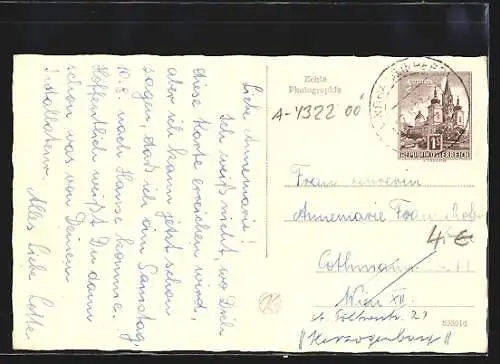 Liebe Annemarie!
Ich weiß nicht, wo Dich
diese Karte erreichen wird,
aber ich kann jetzt schon
sagen, daß ich am Samstag,
10.8. nach Hause komme.
Hoffentlich weißt Du dann
schon was von Deinem
Installateur.
Alles Liebe Lotte
Echte
Photographie
A-4322 00
1S
REPUBLIK ÖSTERREICH
Frau
Annemarie
4,- €
Wien XII.
21
(Herzogenburg)